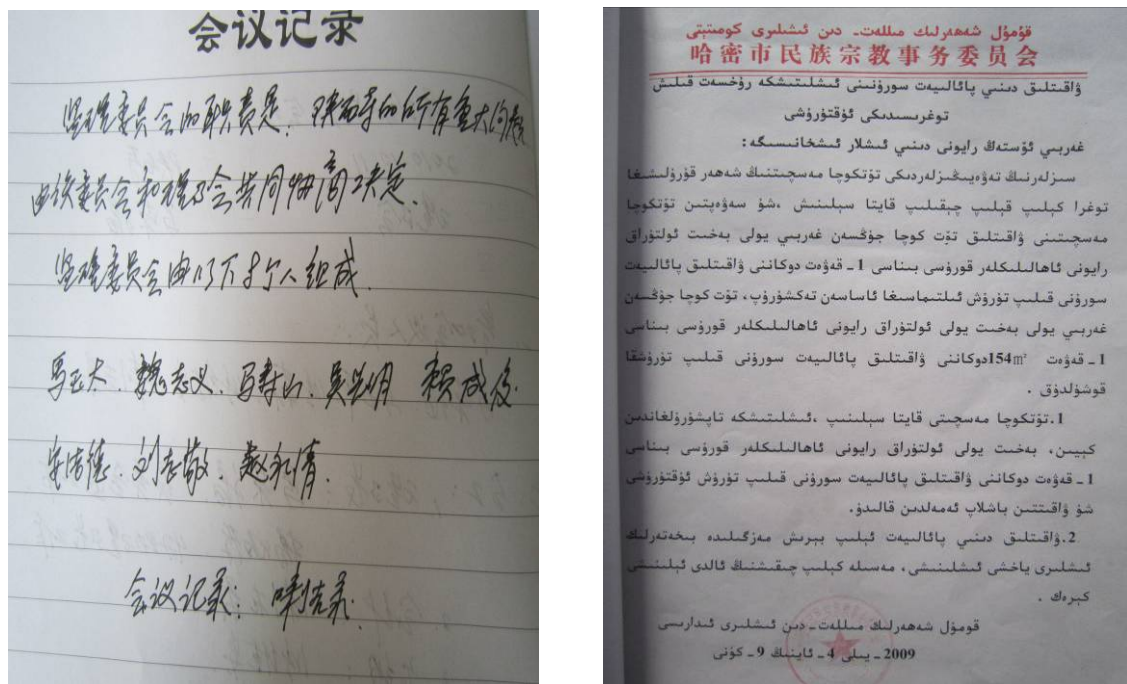 会议记录
坚理委员会的职责是：陕西寺的所有重大问题
由该委员会和理事会共同协商决定.
委员会由以下8个人组成.
马玉大. 魏志义. 马寿山. 吴光明 成俊.
刘志敬. 赵永清.
会议记录：
قۇمۇل شەھەرلىك مىللەت ـ دىن ئىشلىرى كومىتېتى
哈密市民族宗教事务委员会
ۋاقىتلىق دىنىي پائالىيەت سورۇنىنى ئىشلىتىشكە رۇخسەت قىلىش
توغرىسىدىكى ئۇقتۇرۇشى
غەربىي ئۆستەڭ رايونى دىنىي ئىشلار ئىشخانىسىگە:
سىزلەرنىڭ تەۋەيىڭىزلەردىكى تۆتكوچا مەسچىتنىڭ شەھەر قۇرۇلىشىغا
توغرا كېلىپ قېلىپ چېقىلىپ قايتا سېلىنىش ،شۇ سەۋەپتىن تۆتكوچا
مەسچىتىنى ۋاقىتلىق تۆت كوچا جۇڭسەن غەربىي يولى بەخىت ئولتۇراق
رايونى ئاھالىلىكلەر قورۇسى بىناسى 1 ـ قەۋەت دوكاننى ۋاقىتلىق پائالىيەت
سورۇنى قىلىپ تۇرۇش ئىلتىماسىغا ئاساسەن تەكشۈرۈپ، تۆت كوچا جۇڭسەن
غەربىي يولى بەخىت يولى ئولتۇراق رايونى ئاھالىلىكلەر قورۇسى بىناسى
1 ـ قەۋەت 154m²دوكاننى ۋاقىتلىق پائالىيەت سورۇنى قىلىپ تۇرۇشقا
قوشۇلدۇق .
1.تۆتكوچا مەسچىتى قايتا سېلىنىپ ،ئىشلىتىشكە تاپشۇرۇلغاندىن
كېيىن، بەخىت يولى ئولتۇراق رايونى ئاھالىلىكلەر قورۇسى بىناسى
1 ـ قەۋەت دوكاننى ۋاقىتلىق پائالىيەت سورۇنى قىلىپ تۇرۇش ئۇقتۇرۇشى
شۇ ۋاقىتتىن باشلاپ ئەمەلدىن قالىدۇ.
2.ۋاقىتلىق دىنىي پائالىيەت ئېلىپ بېرىش مەزگىلىدە بىخەتەرلىك
ئىشلىرى ياخشى ئىشلىنىشى، مەسىلە كېلىپ چىقىشنىڭ ئالدى ئېلىنىشى
كېرەك .
قومۇل شەھەرلىك مىللەت ـ دىن ئىشلىرى ئىدارىسى
2009 ـ يىلى 4 ـ ئاينىڭ 9 ـ كۈنى